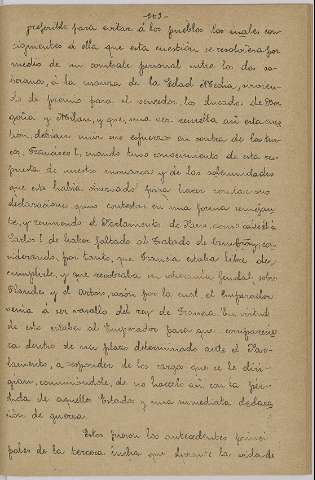 preferible para evitar á los pueblos los males con-
siguientes á ella que esta cuestión se resolviera por
medio de un combate personal entre los dos so-
beranos, á la usanza de la Edad Media,
do de premio para el vencedor los ducados de Bor-
goña y Milan, y que, una vez resuelta así esta
tion, debían unir sus esfuerzos en contra de los tur-
cos. Francisco I, cuando tuvo conocimiento de esta res-
puesta de nuestro monarca y de las solemnidades
que esta había para hacer constar su
declaración quiso contestar en una forma semejan-
te, y reuniendo el Parlamento de Paris, acusó
Carlos I de haber faltado al Tratado de Cambray; con-
siderando, por tanto, que Francia estaba libre de
cumplirle, y que recobraba su soberanía feudal, sobre
Flandes y el Artois, razon por la cual el Emperador
venía á ser vasallo del rey de Francia. En virtud
de esto citaba al Emperador para que comparecie-
ra dentro de un plazo determinado ante el Par-
lamento, a responder de los cargos que se le diri-
gian, conminándole, de no hacerlo así con la pér-
dida de aquellos Estados y una inmediata declara-
ción de guerra.
Estos fueron los antecedentes princi-
pales de la tercera lucha que durante la vida de